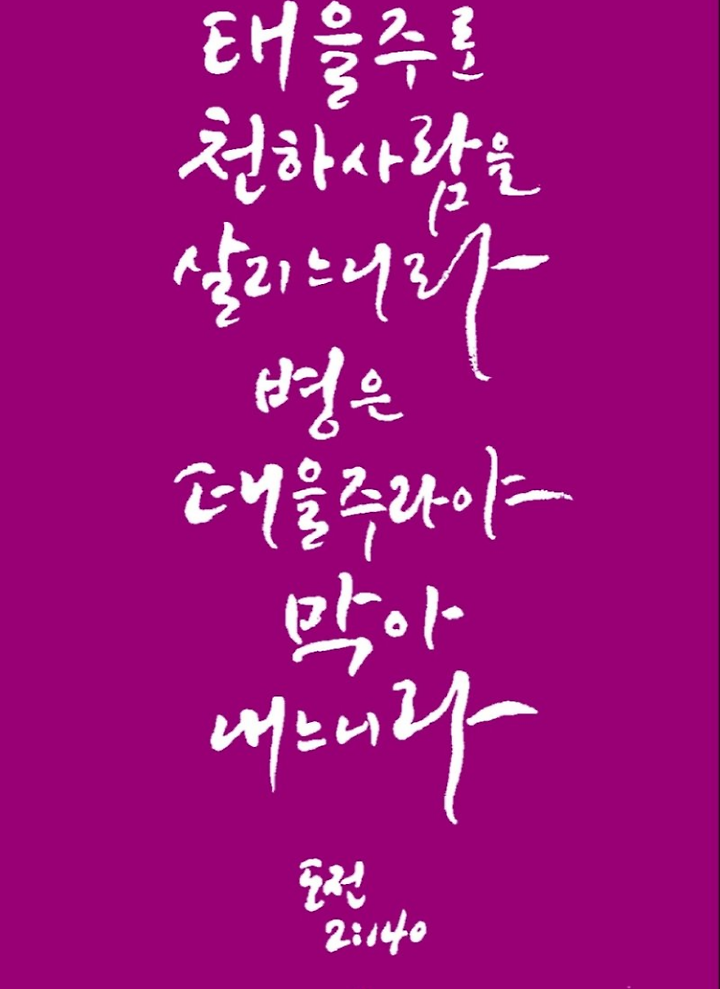 태을주로
천하사람을
살리느니라
병은
태을주라야
막아
내느니라
도전
2:140